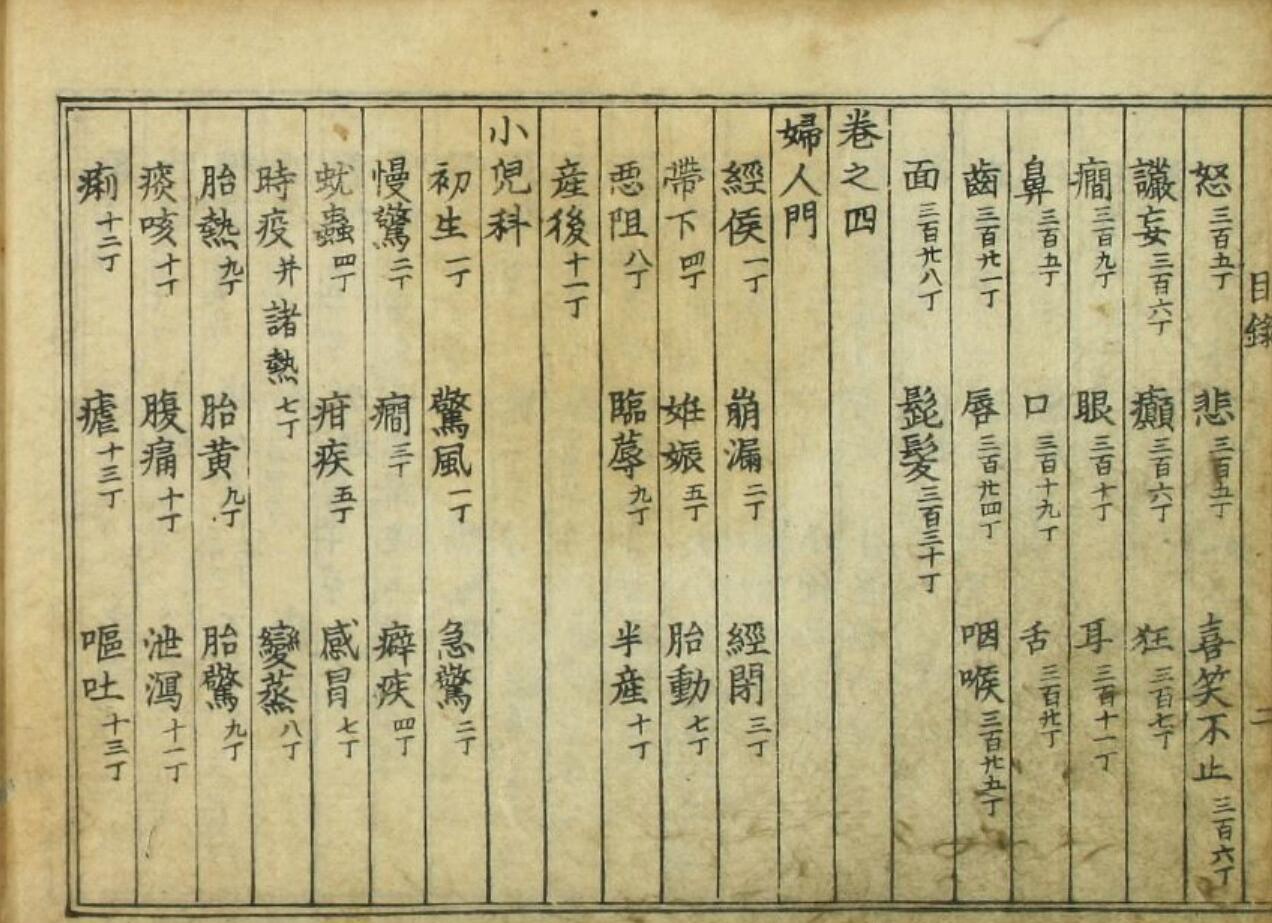 目錄 二
怒三百五丁 悲三百五丁 喜笑不止三百六丁
讝妄三百六丁 癲三百六丁 狂三百七丁
癎三百九丁 眼三百十丁 耳三百十一丁
鼻三百五丁 口三百十九丁 舌三百廿丁
齒三百廿一丁 唇三百廿四丁 咽喉三百廿五丁
面三百廿八丁 髭髮三百三十丁
卷之四
婦人門
經侯一丁 崩漏二丁 經閉三丁
帶下四丁 姙娠五丁 胎動七丁
惡阻八丁 臨蓐九丁 半產十丁
產後十一丁
小兒科
初生一丁 驚風一丁 急驚二丁
慢驚二丁 癎三丁 癖疾四丁
蚘蟲四丁 疳疾五丁 感冒七丁
時疫并諸熱七丁 變蒸八丁
胎熱九丁 胎黃九丁 胎驚九丁
痰咳十丁 腹痛十丁 泄瀉十一丁
痢十二丁 瘧十三丁 嘔吐十三丁